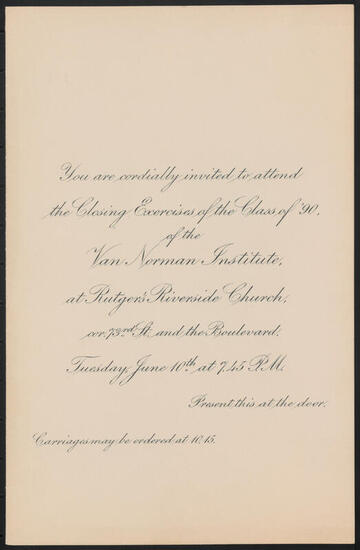 You are cordially invited to attend
the Closing Exercises of the Class of '90,
of the
Van Norman Institute,
at Rutger's Riverside Church,
cor. 73rd St. and the Boulevard,
Tuesday, June 10th at 7.45 P.M.
Present this at the door.
Carriages may be ordered at 10.15.